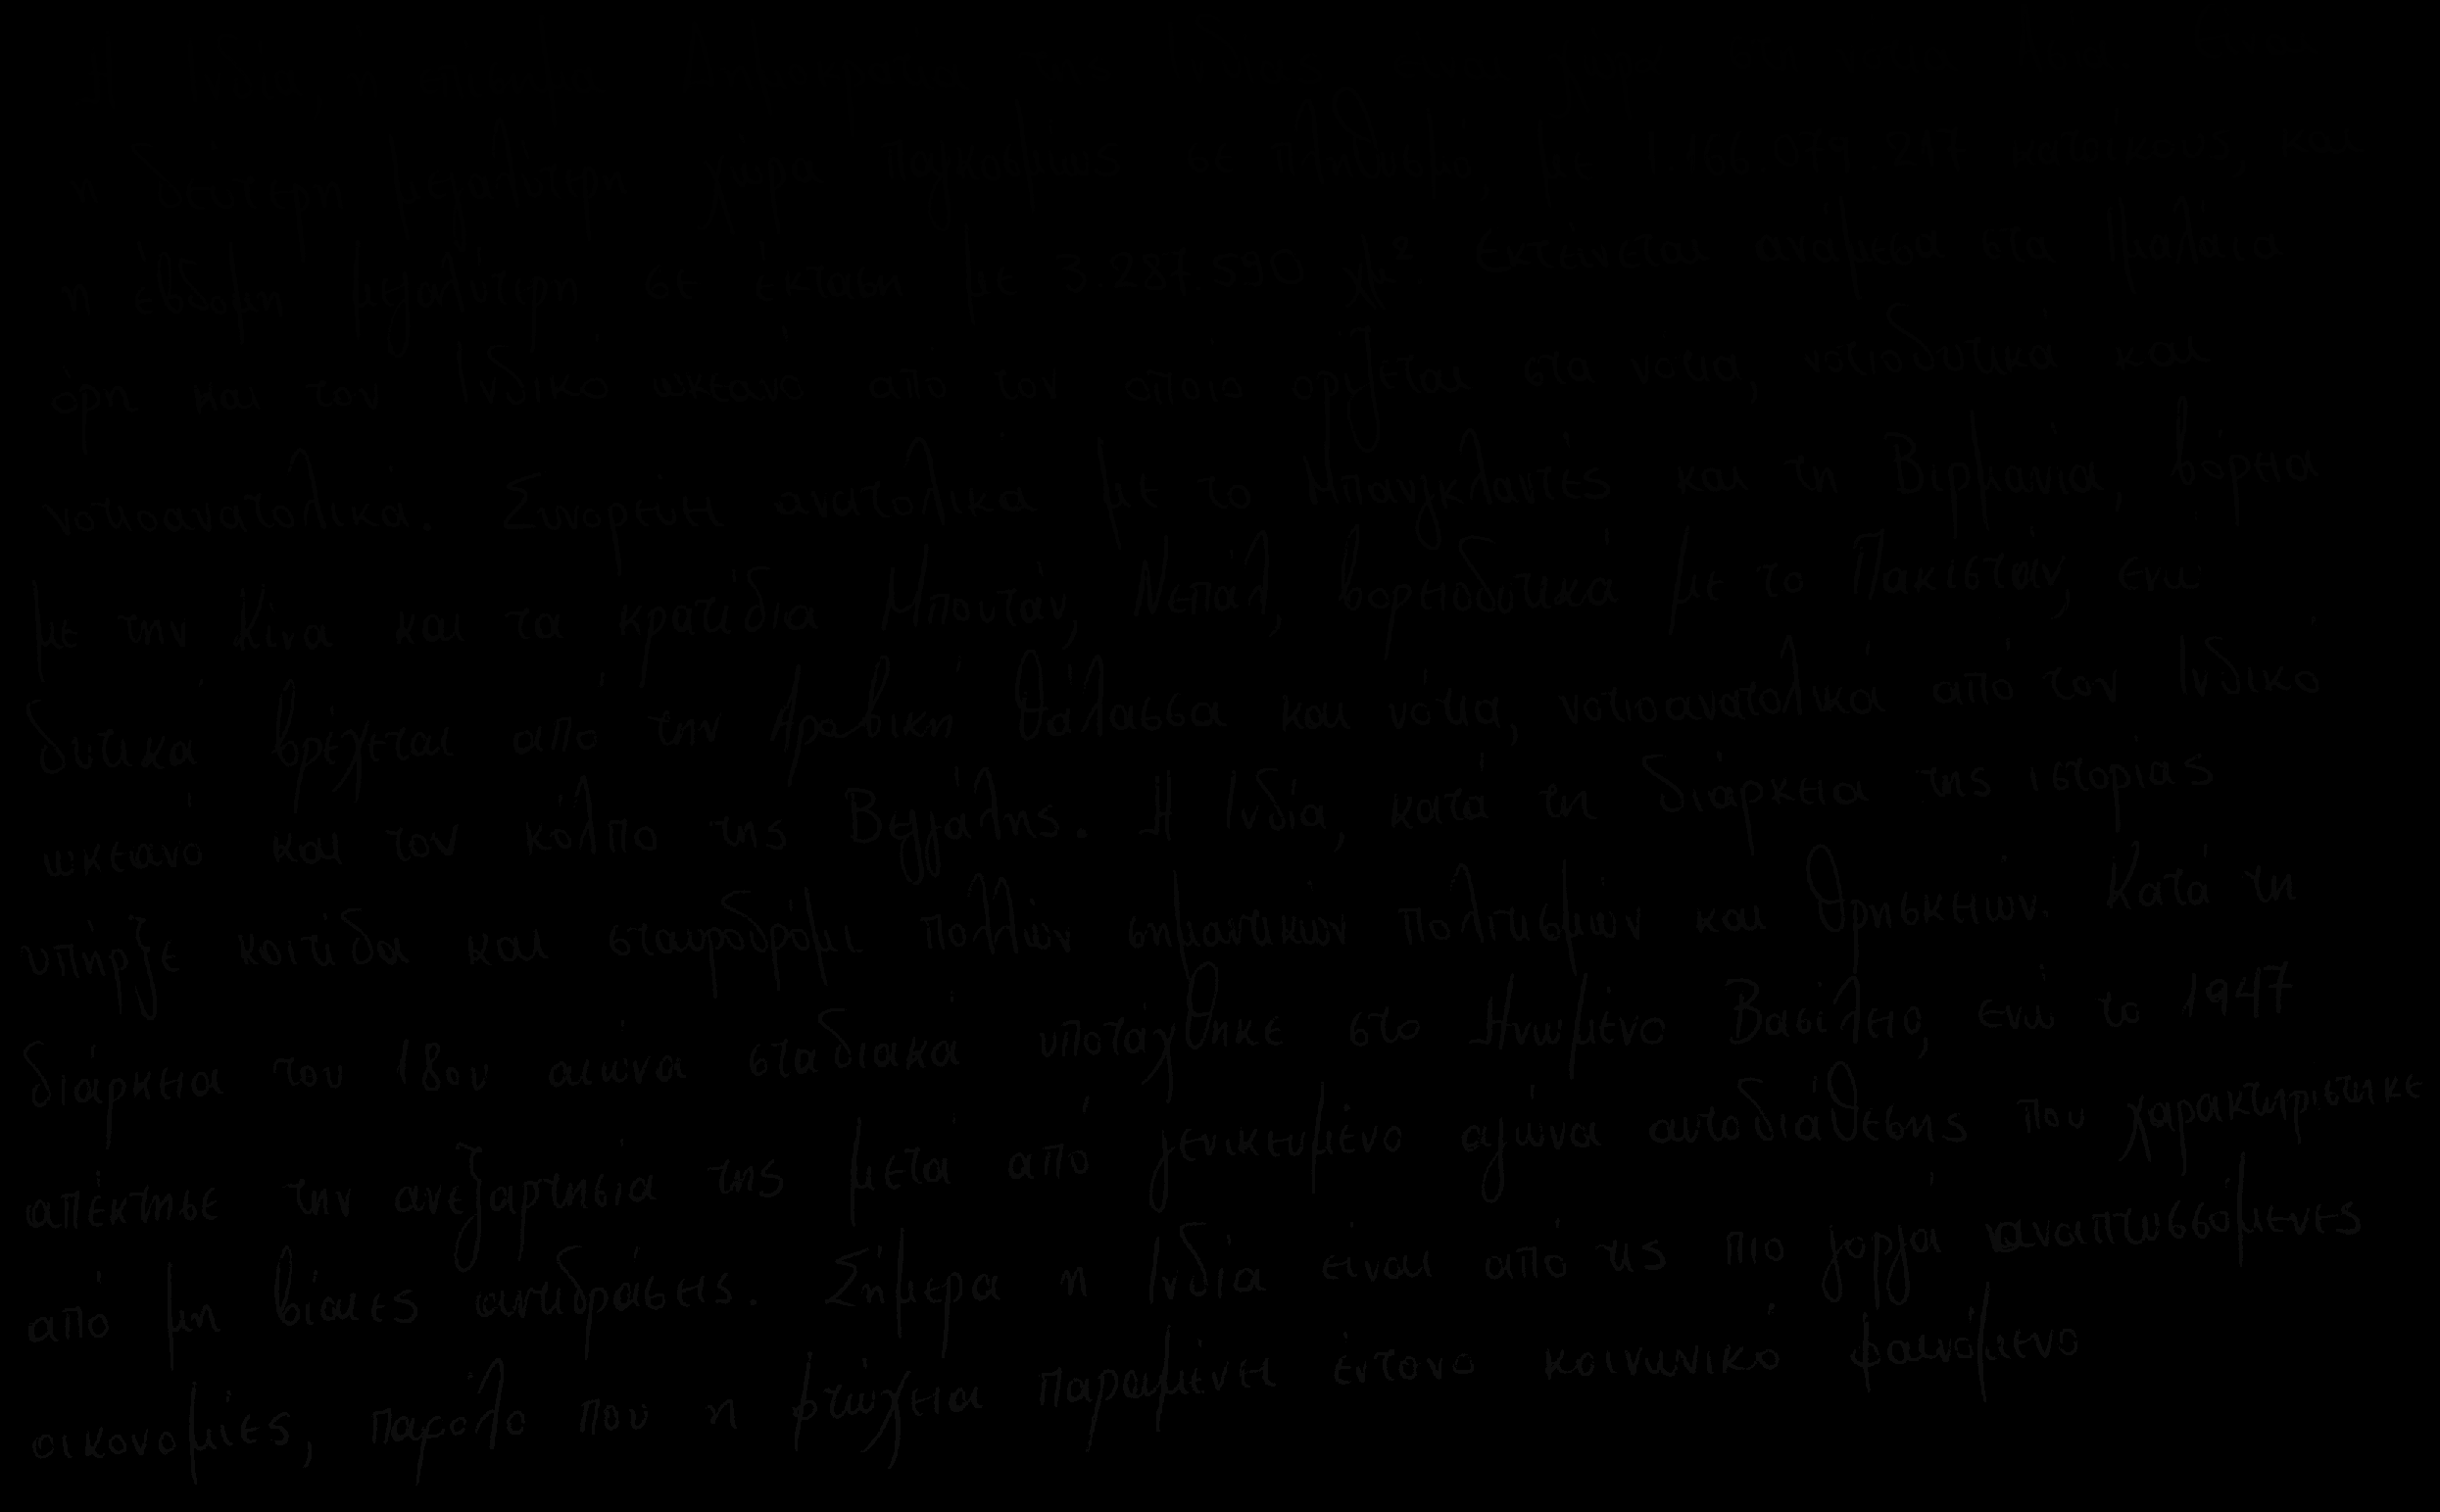 η δεύτερη μεγαλύτερη χώρα παγκοσμίως σε πληθυσμό, με 1 166 079 217 κατοίκους, και
η έβδομη μεγαλύτερη σε έκταση με 3.287.590 χμ². Εκτείνεται ανάμεσα στα Ιμαλάια
όρη και τον Ινδικό ωκεανό από τον οποίο ορίζεται στα νότια, νοτιοδυτικά και
νοτιοανατολικά. Συνορεύει ανατολικά με το Μπανγκλαντές και τη Βιρμανία, βόρεια
με την Κίνα και τα κρατίδια Μπουτάν, Νεπάλ, βορειοδυτικά με το Πακιστάν, ενώ
δυτικά βρέχεται από την Αραβική Θάλασσα και νότια, νοτιοανατολικά από τον Ινδικό
ωκεανό και τον κόλπο της Βεγγάλης. Η Ινδία, κατά τη διάρκεια της ιστορίας
υπήρξε κοιτίδα και σταυροδρόμι πολλών σημαντικών πολιτισμών και θρησκειών. Κατά τη
διάρκεια του 18ου αιώνα σταδιακά υποτάχθηκε στο Ηνωμένο Βασίλειο, ενώ το 1947
απέκτησε την ανεξαρτησία της μετά από γενικευμένο αγώνα αυτοδιάθεσης που χαρακτηρίστηκε
από μη βίαιες αντιδράσεις. Σήμερα η Ινδία είναι από τις πιο γοργά αναπτυσσόμενες
οικονομίες, παρόλο που η φτώχεια παραμένει έντονο κοινωνικό φαινόμενο